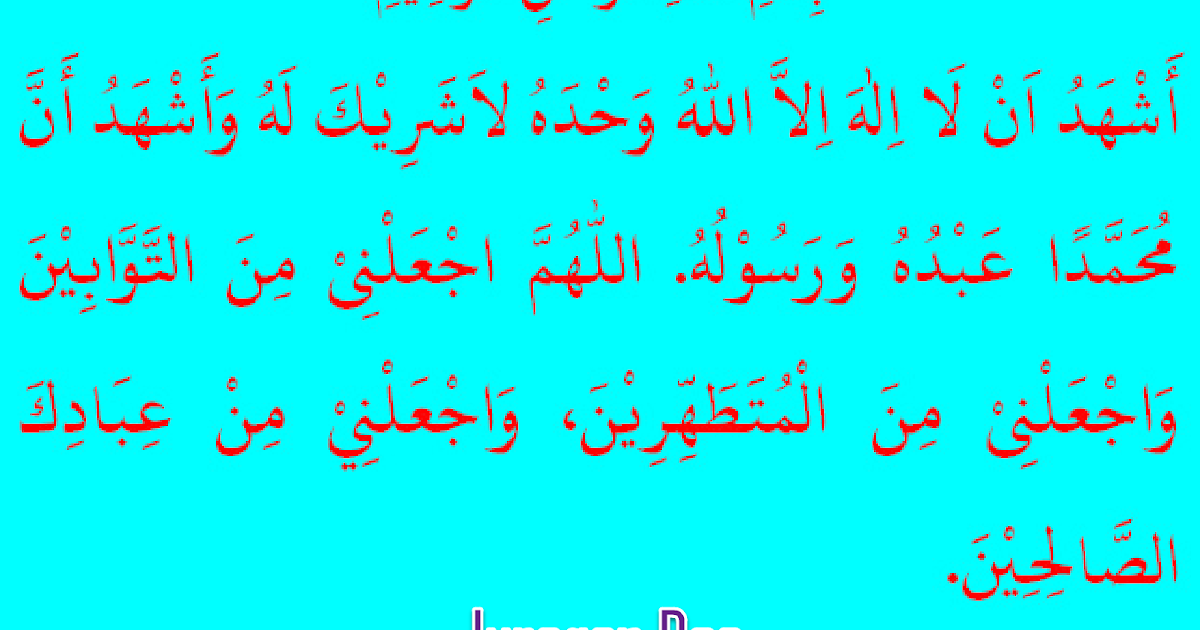 أَشْهَدُ اَنْ لَا اِلٰهَ اِلاَّ اللّٰهُ وَحْدَهُ لاَشَرِيْكَ لَهُ وَأَشْهَدُ أَنَّ
مُحَمَّدًا عَبْدُهُ وَرَسُوْلُهُ. اللّٰهُمَّ اجْعَلْنِىْ مِنَ التَّوَّابِيْنَ
وَاجْعَلْنِىْ مِنَ الْمُتَطَهِّرِيْنَ، وَاجْعَلْنِيْ مِنْ عِبَادِكَ
الصَّالِحِيْنَ.